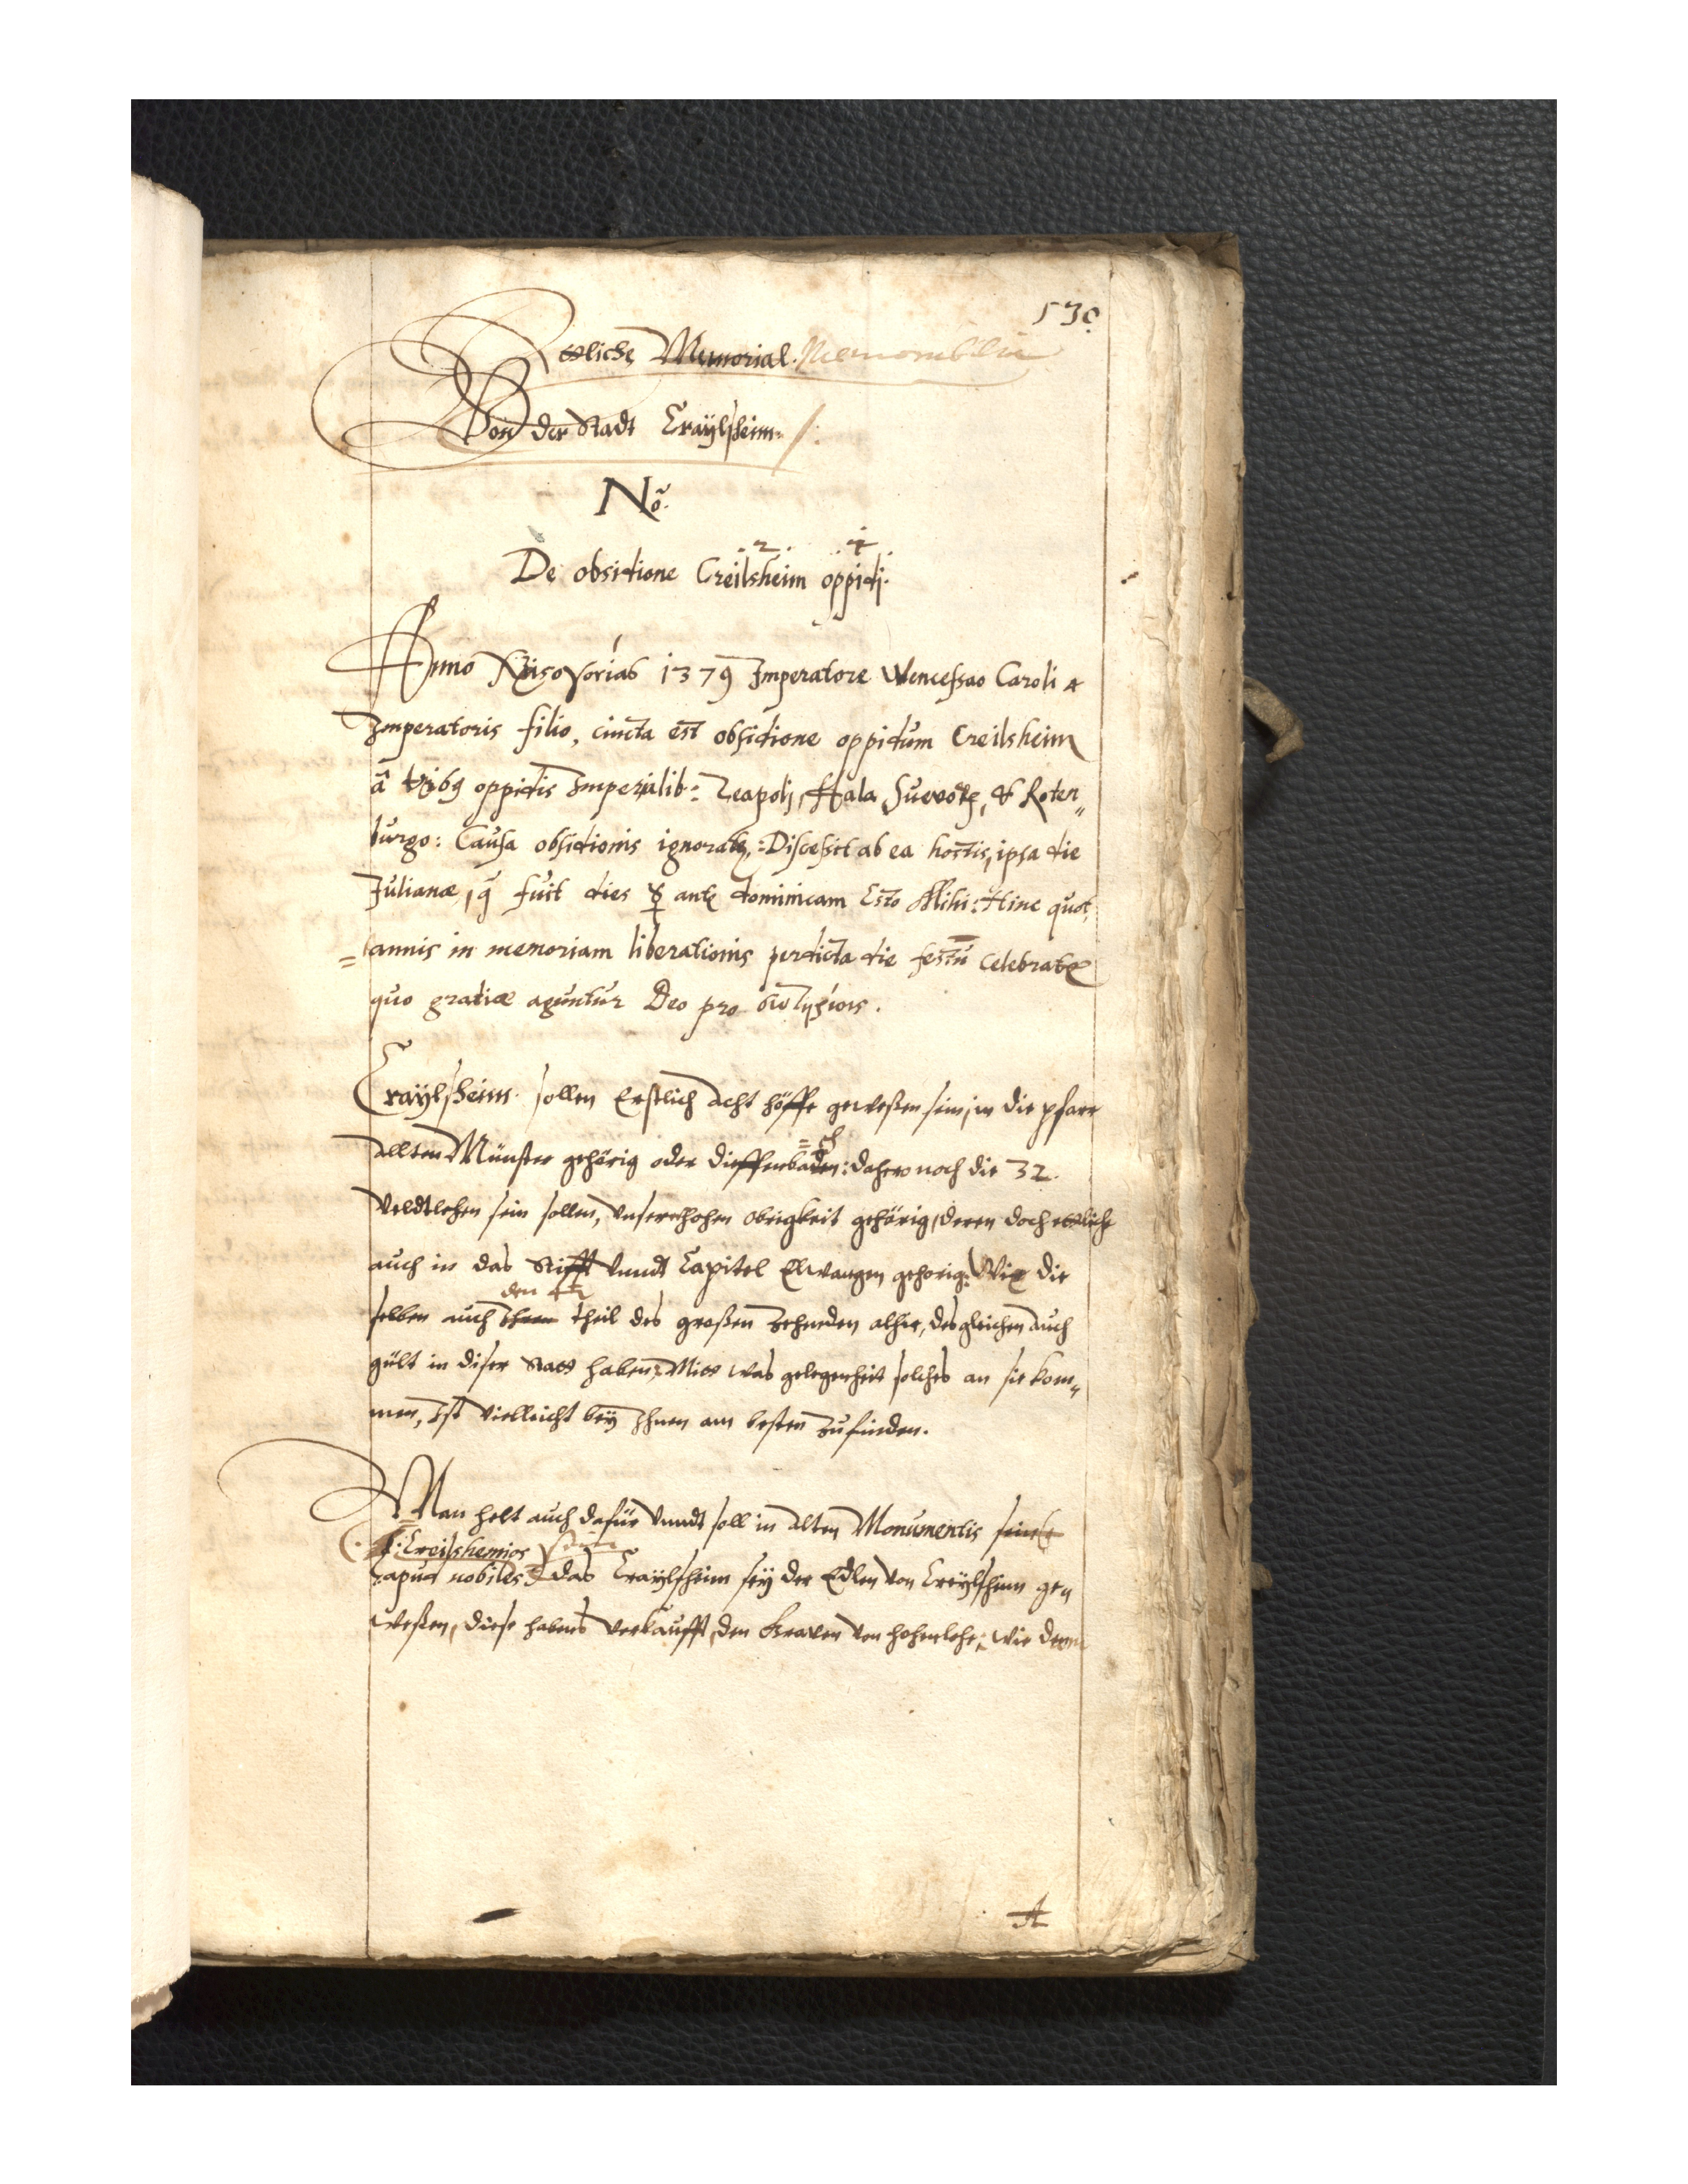 530
Ettliche Memorial. Memorabilia
Von der Stadt Craÿlsheim.
No.
2. 1.
De obsidione Creilsheim oppidj.
Anno 1379 Imperatore Wenceslao Caroli 4
Imperatoris filio, cincta est obsidione oppidum Creilsheim
â oppidis Imperialib: Hala Suevor, & Roten„
burgo: Causa obsidionis ignorat: Discessit ab ea hostis, ipsa die
Julianæ, q fuit dies ☿ ante dominicam Esto Mihi: Hinc quot
= annis in memoriam liberationis perdicta die festu celebratr
quo gratiæ aguntur Deo pro
Craÿlsheim sollen Erstlich acht höffe geweßen sein, in die pfarr
allten Münster gehörig oder dieffenbaden: =ch dahero noch die 32.
Veldtlehen sein sollen, Unserer hohen obrigkeit gehörig, deren doch ettliche
auch in das Stifft Vnndt Capitel Elwangen gehorig: Wie die
den 4t
selben auch theil des großen Zehnden alhie, desgleichen auch
gült in diser Statt haben, Mitt was gelegenheit solches an sie kom„
men, Ist Vielleicht beÿ Ihnen am besten Zufinden.
Man helt auch dafür Vnndt soll in alten Monumentis sein
Creilshemios sein
apud nobiles das Craÿlsheim seÿ der Edlen von Creÿlsheim ge„
weßen, diese habens Verkaufft, den Graven von Hohenlohe, wie denn
A